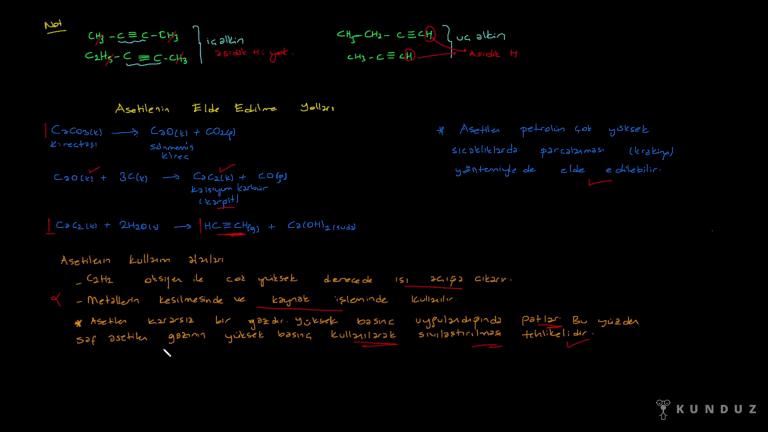 Not
CH3 - C ≡ C - CH3
C2H5 - C ≡ C - CH3
iç alkin
asidik H yok.
CH3 - CH2 - C ≡ CH
CH3 - C ≡ CH
uç alkin
Asidik H
Asetilenin Elde Edilme Yolları
CaCO3(k) → CaO(k) + CO2(g)
kireçtaşı
sönmemiş
kireç
CaO(k) + 3C(k) → CaC2(k) + CO(g)
kalsiyum karbür
(karpit)
CaC2(k) + 2H2O(s) → HC ≡ CH(g) + Ca(OH)2(suda)
* Asetilen petrolün çok yüksek
sıcaklıklarda parçalanması (kraking)
yöntemiyle de elde edilebilir.
Asetilenin kullanım alanları
- C2H2 oksijen ile çok yüksek derecede ısı açığa çıkarır.
- Metallerin kesilmesinde ve kaynak işleminde kullanılır
* Asetilen kararsız bir gazdır. yüksek basınç uygulandığında patlar. Bu yüzden
saf asetilen gazının yüksek basınç kullanılarak sıvılaştırılması tehlikelidir.
KUNDUZ